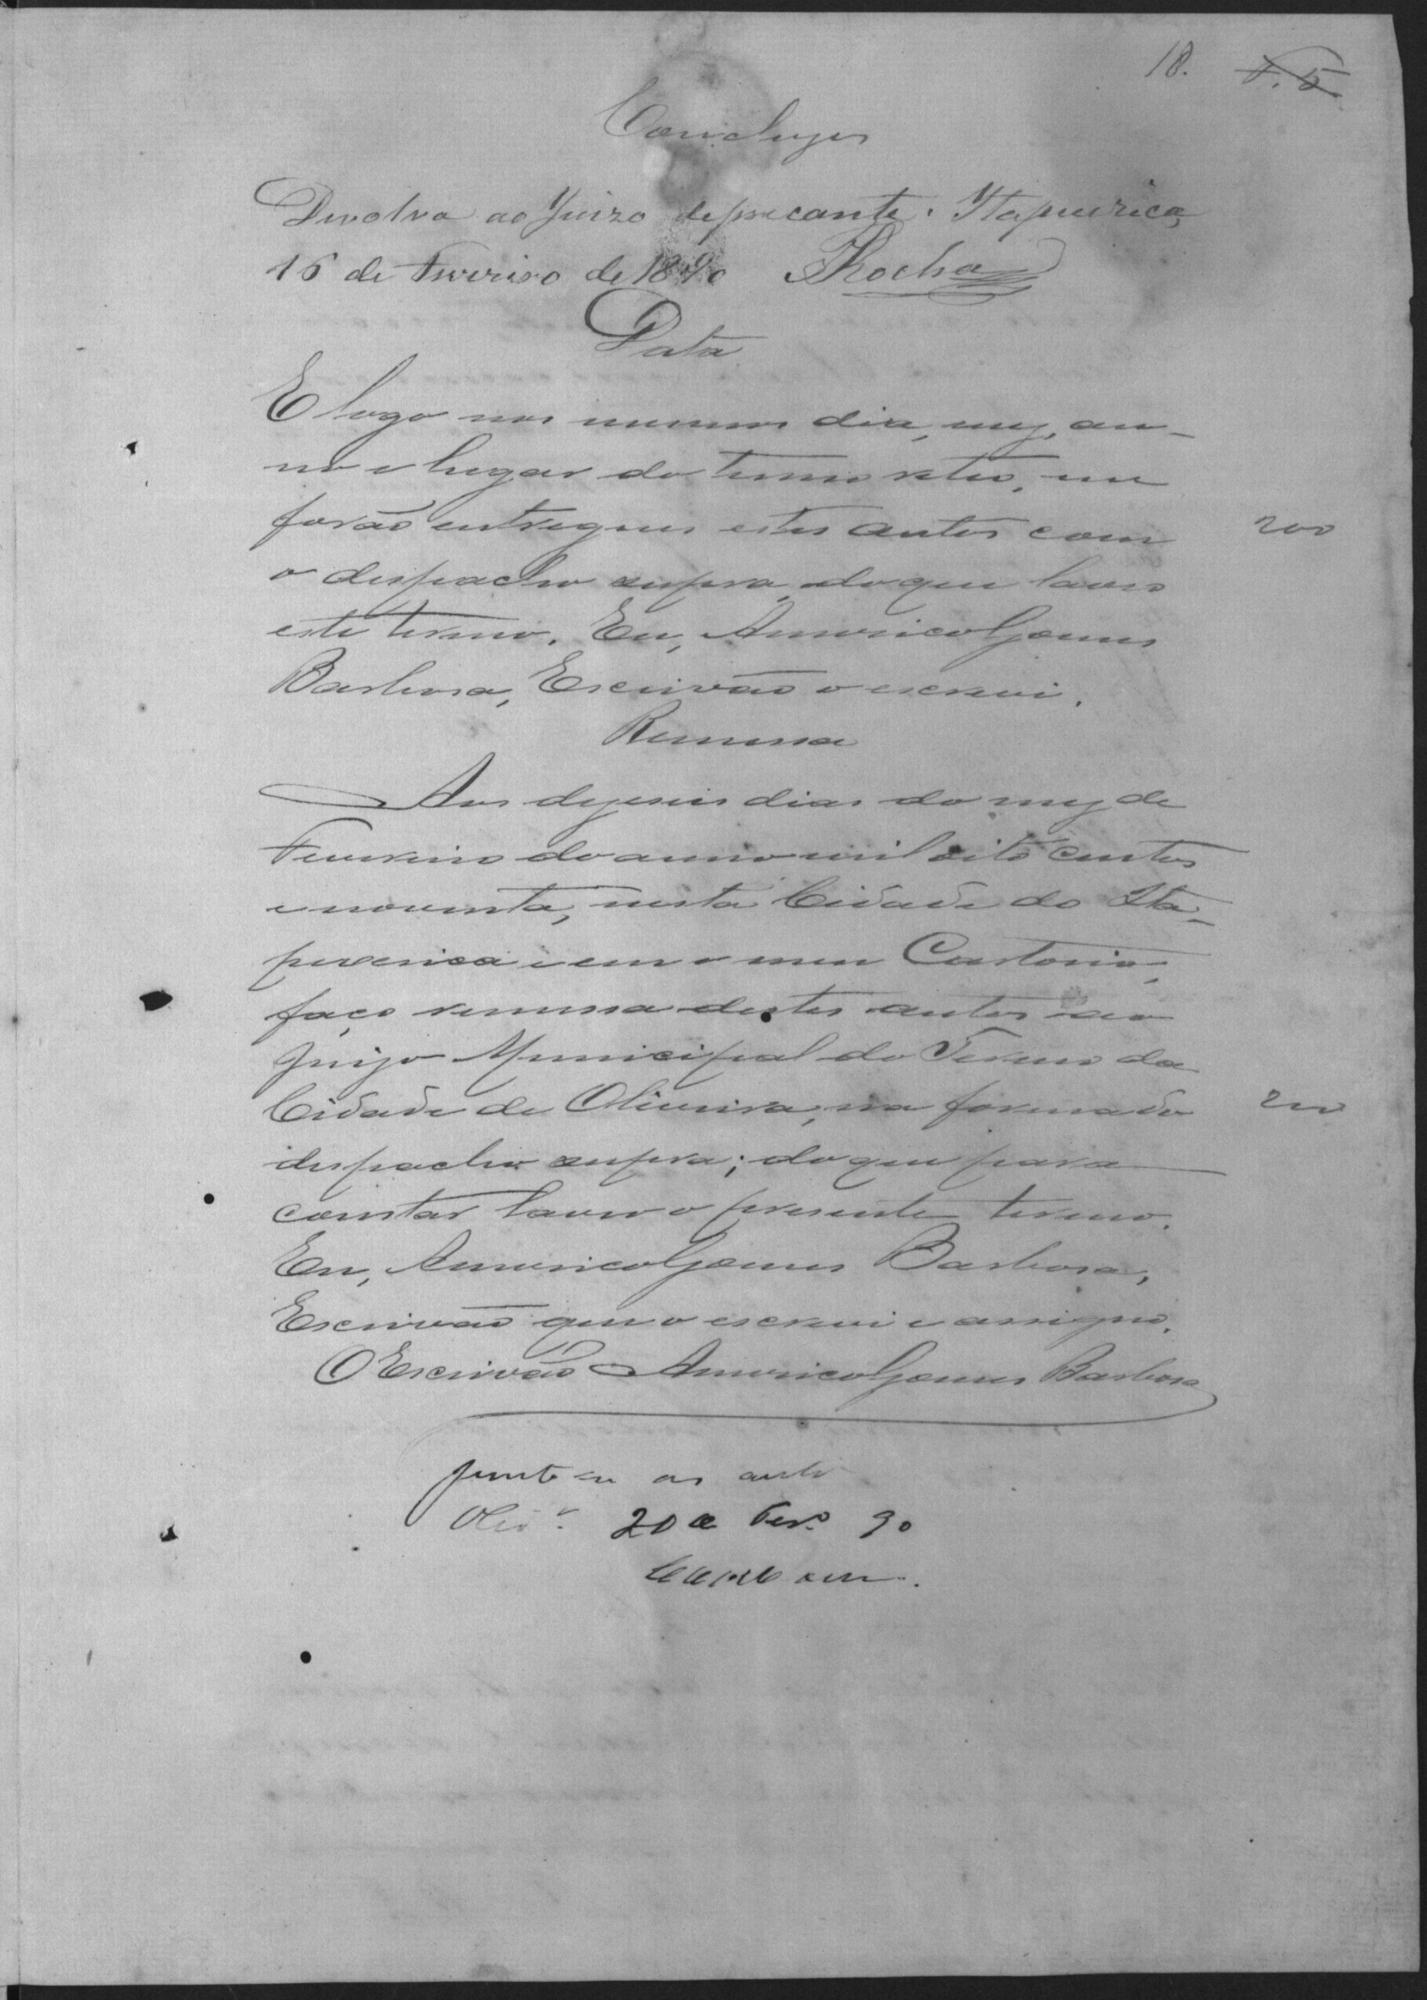 18. F. 5
Conclusos
Devolva ao Juizo deprecante. Itapecerica,
16 de Fevereiro de 1890 Rocha
Data
E logo nos mesmos dia, mez, an-
no e lugar do termo retro, me
forão entregues estes autos com 200
o despacho supra, do que lavro
este termo. Eu, Americo Gomes
Barbosa, Escrivão o escrevi.
Remessa
Aos dezeseis dias do mez de
Fevereiro do anno mil oito centos
e noventa, nesta Cidade do Ita-
pecerica e em o meu Cartorio,
faço remessa destes autos ao
Juizo Municipal do Termo da
Cidade de Oliveira, na forma do 200
despacho supra; do que para
constar lavro o presente termo.
Eu, Americo Gomes Barbosa,
Escrivão que o escrevi e assigno.
O Escrivão Americo Gomes Barbosa
Junte-se os autos
Olivª. 20 de Fevº 90